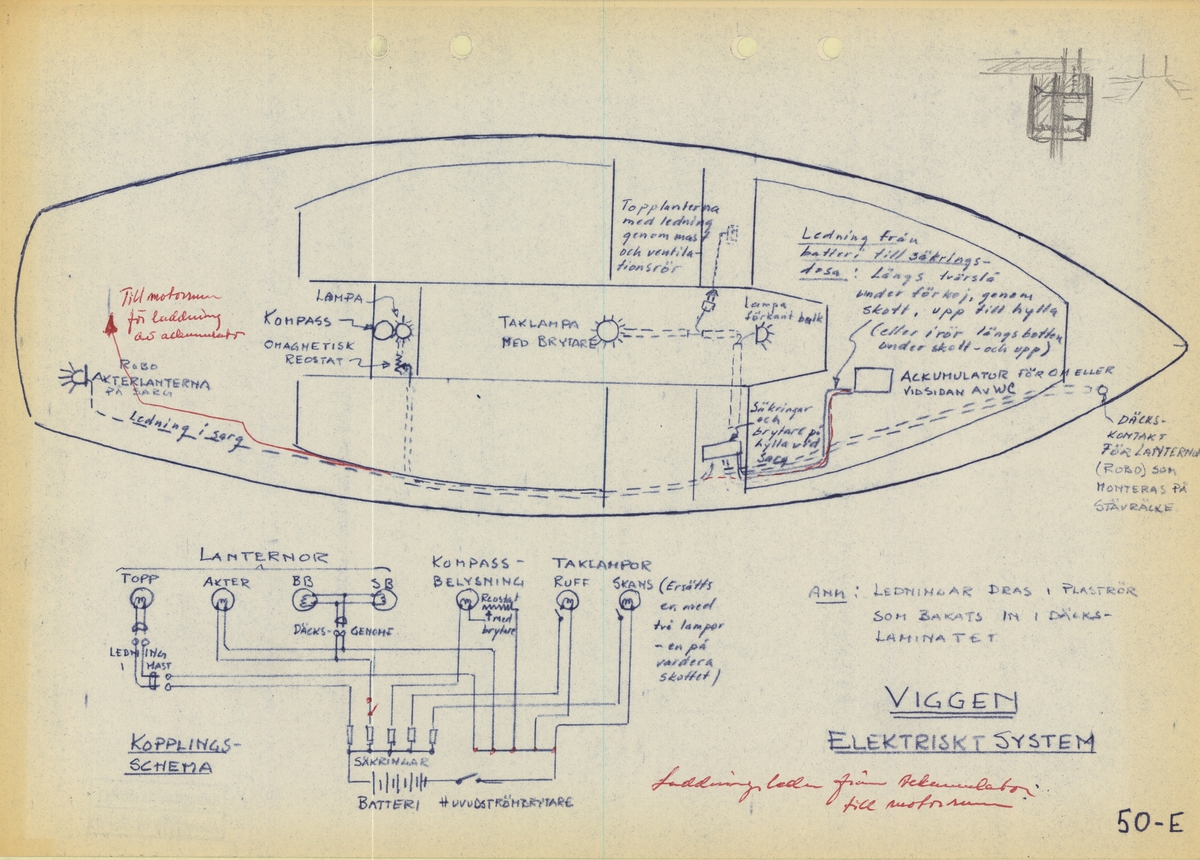 Topplanterna
med ledning
genom mast
och ventila-
tionsrör
Ledning från
batteri till säkrings-
dosa: Längs tvärslå
under förkoj, genom
skott, upp till hylla
(eller i rör längs botten
under skott- och upp)
Till motorrum
för laddning
av ackumulator
LAMPA
KOMPASS
OMAGNETISK
REOSTAT
TAKLAMPA
MED BRYTARE
Lampa
förkant balk
ROBO
AKTERLANTERNA
PÅ SARG
Ledning i sarg
ACKUMULATOR FÖR OM ELLER
VIDSIDAN AV WC
Säkringar
och
brytare på
hylla vid
sarg
DÄCKS-
KONTAKT
FÖR LANTERNA
(ROBO) SOM
MONTERAS PÅ
STÄVRÄCKE
LANTERNOR
TOPP
AKTER
BB
SB
KOMPASS-
BELYSNING
Reostat
med
brytare
TAKLAMPOR
RUFF
SKANS (Ersätts
ev. med
två lampor
- en på
vardera
skottet)
DÄCKS- GENOMF.
LEDNING
I MAST
SÄKRINGAR
BATTERI
HUVUDSTRÖMBRYTARE
KOPPLINGS-
SCHEMA
ANM: LEDNINGAR DRAS I PLASTRÖR
SOM BAKATS IN I DÄCKS-
LAMINATET
VIGGEN
ELEKTRISKT SYSTEM
Laddningsledn från ackumulator
till motorrum
50-E